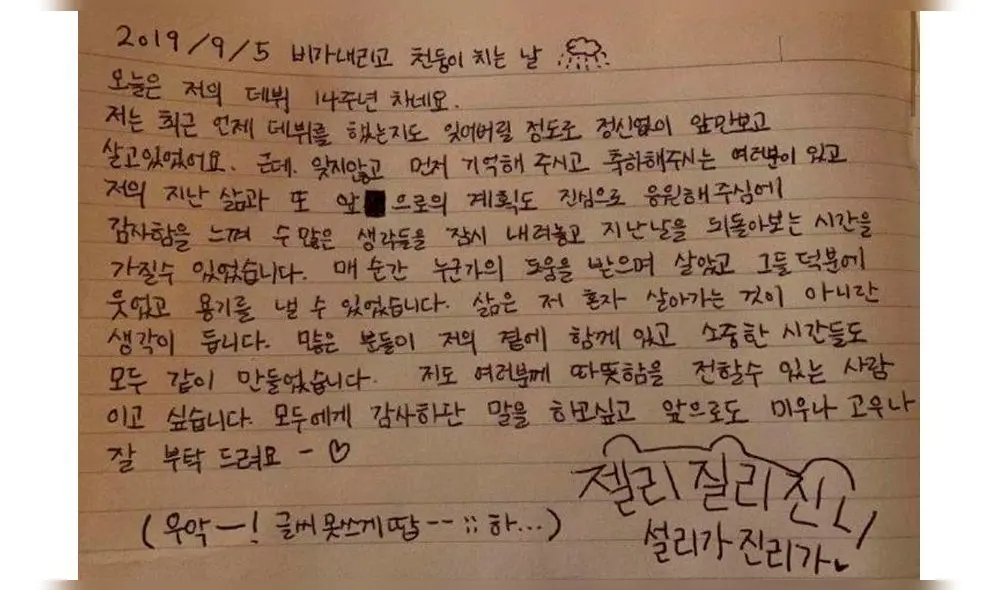 2019/9/5 비가내리고 천둥이 치는 날
오늘은 저의 데뷔 14주년 차네요.
저는 최근 언제 데뷔를 했는지도 잊어버릴 정도로 정신없이 앞만보고
살고있었어요. 근데. 잊지않고 먼저 기억해 주시고 축하해주시는 여러분이 있고
저의 지난 삶과 또 앞으로의 계획도 진심으로 응원해 주심에
감사함을 느껴 수 많은 생각들을 잠시 내려놓고 지난날을 되돌아보는 시간을
가질수 있었습니다. 매 순간 누군가의 도움을 받으며 살았고 그들 덕분에
웃었고 용기를 낼 수 있었습니다. 삶은 저 혼자 살아가는 것이 아니란
생각이 듭니다. 많은 분들이 저의 곁에 함께 있고 소중한 시간들도
모두 같이 만들었습니다. 저도 여러분께 따뜻함을 전할수 있는 사람
이고 싶습니다. 모두에게 감사하단 말을 하고싶고 앞으로도 미우나 고우나
잘 부탁 드려요 - ♡
젤리 질리 진
(우악ㅡ! 글씨 못쓰게땁 -- ;; 하...)
설리가 진리가